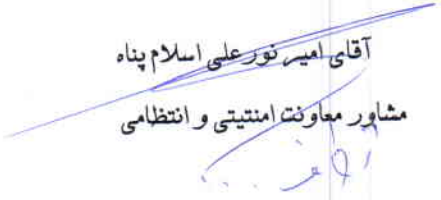 آقای امیر نورعلی اسلام پناه
مشاور معاونت امنتیتی و انتظامی